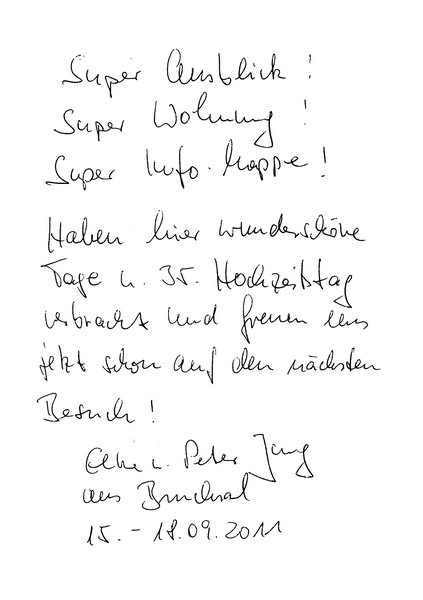 Super Ausblick!
Super Wohnung!
Super Info-Mappe!
Haben hier wunderschöne
Tage u. 35. Hochzeitstag
verbracht und freuen uns
jetzt schon auf den nächsten
Besuch!
Elke u. Peter Jung
aus Bruchsal
15. - 18.09.2011